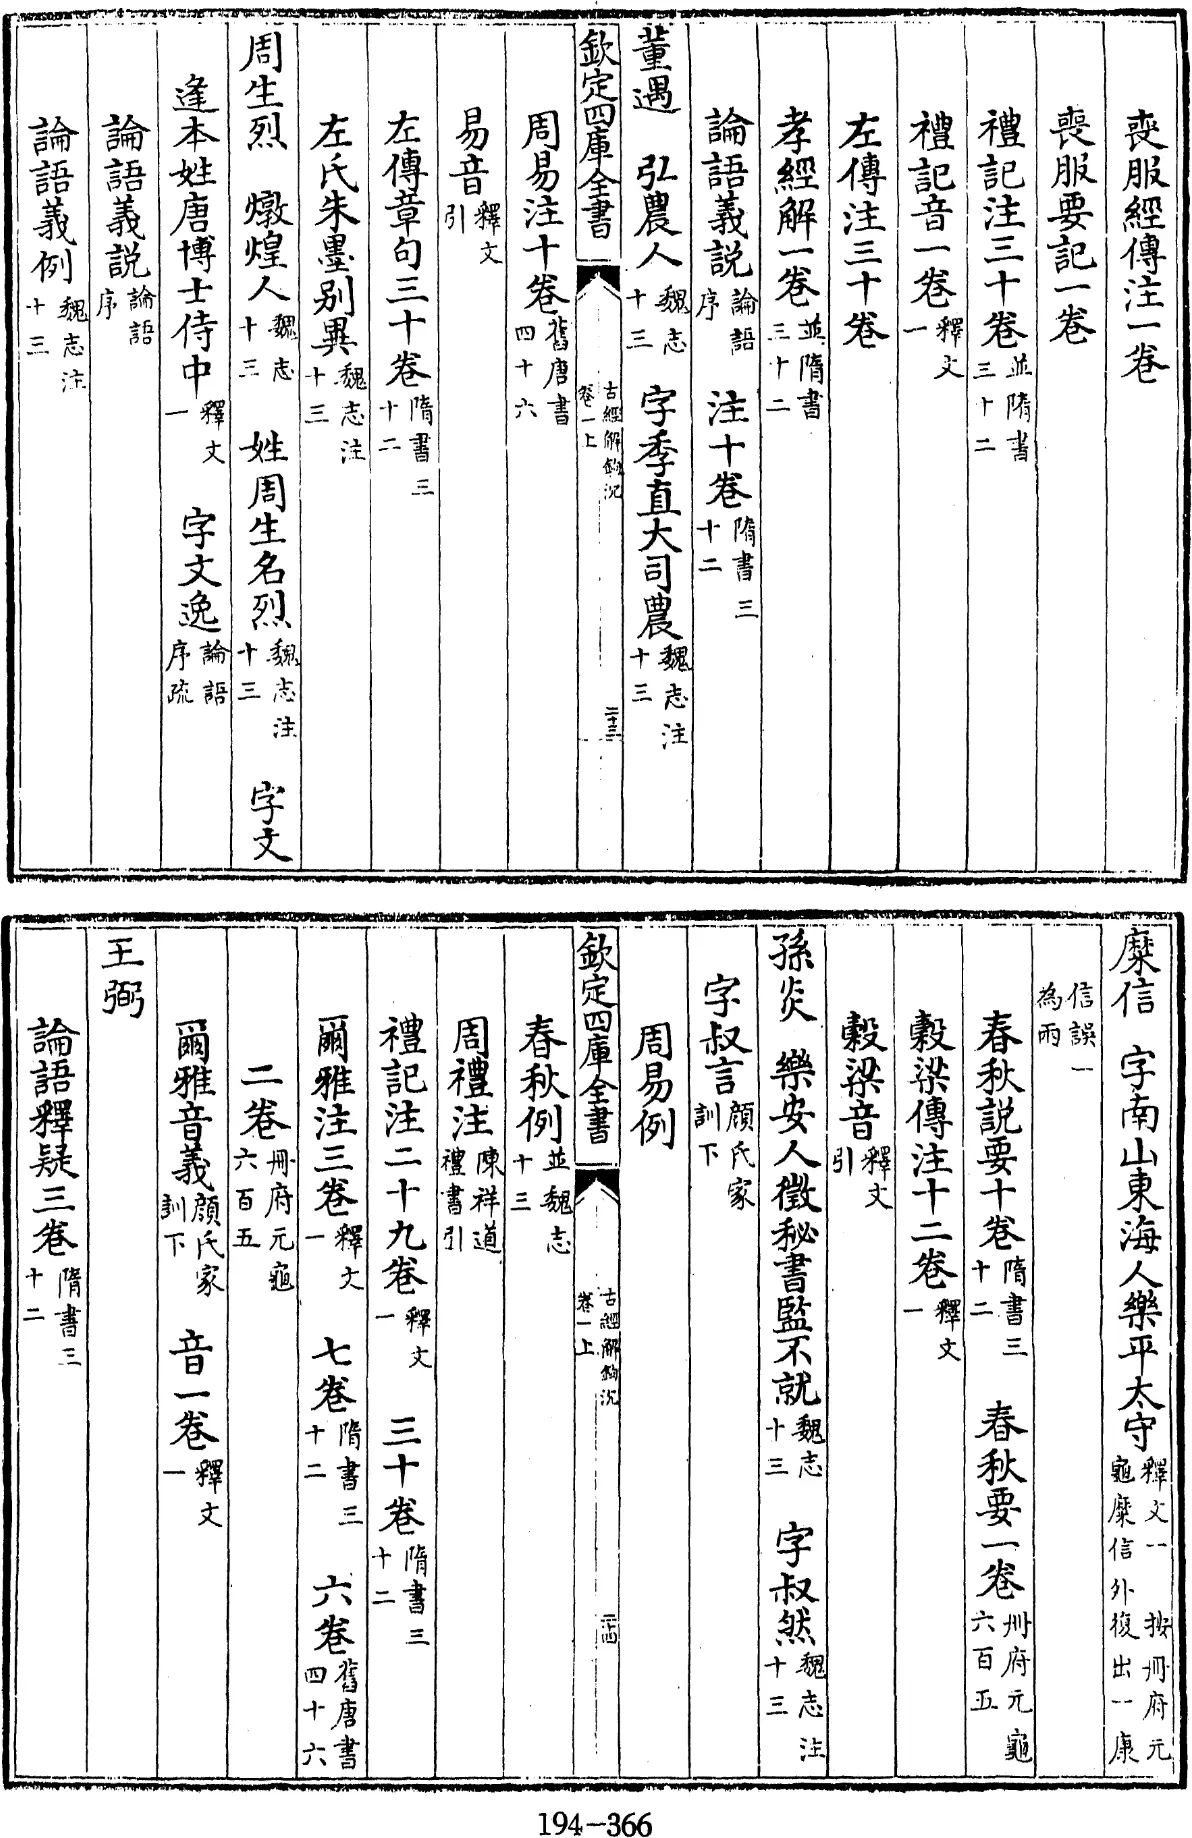 喪服經傳注一卷
喪服要記一卷
禮記注三十卷並隋書三十二
禮記音一卷釋文一
左傳注三十卷
孝經解一卷並隋書三十二
論語義説論語序 注十卷隋書三十二
董遇 弘農人魏志十三 字季直大司農魏志注十三
欽定四庫全書 古經解鉤沉卷一上 二十三
周易注十卷舊唐書四十六
易音釋文引
左傳章句三十卷隋書三十二
左氏朱墨别異魏志注十三
周生烈 燉煌人魏志十三 姓周生名烈魏志注十三 字文
逢本姓唐博士侍中釋文一 字文逸論語序疏
論語義説論語序
論語義例魏志注十三
糜信 字南山東海人樂平太守釋文一 按冊府元龜糜信外復出一康
信誤一為兩
春秋説要十卷隋書三十二 春秋要一卷冊府元龜六百五
穀梁傳注十二卷釋文一
穀梁音釋文引
孫炎 樂安人徵秘書監不就魏志十三 字叔然魏志注十三
字叔言顔氏家訓下
周易例
欽定四庫全書 古經解鉤沉卷一上 二十四
春秋例並魏志十三
周禮注陳祥道禮書引
禮記注二十九卷釋文一 三十卷隋書三十二
爾雅注三卷釋文一 七卷隋書三十二 六卷舊唐書四十六
二卷冊府元龜六百五
爾雅音義顔氏家訓下 音一卷釋文一
王弼
論語釋疑三卷隋書三十二
194-366